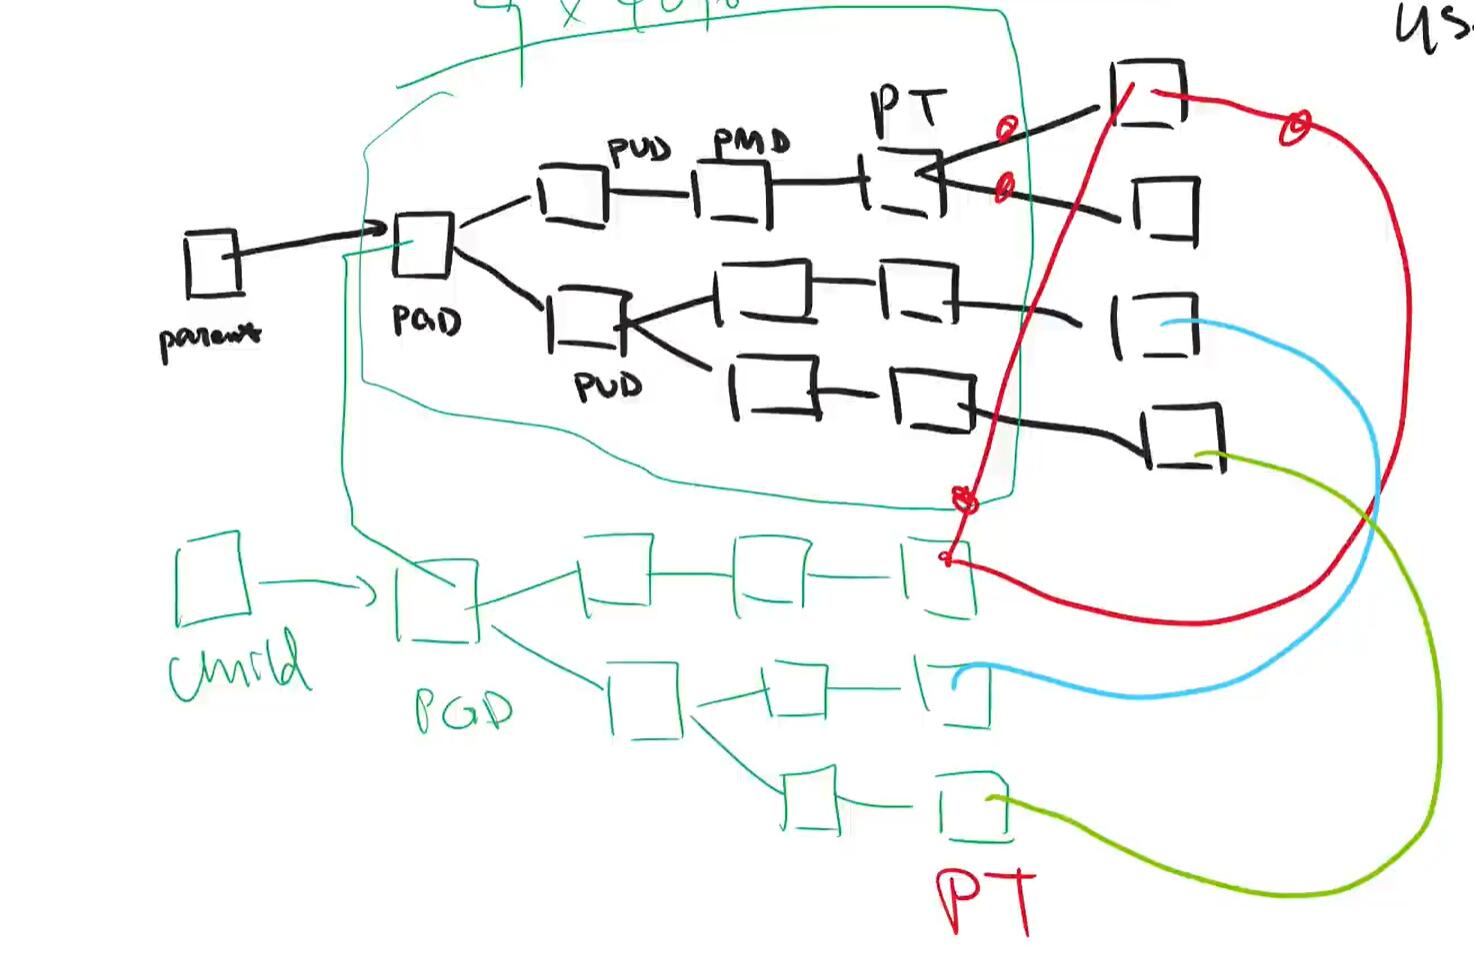 PT
PUD PMD
parent
PGD
PUD
child
PGD
PT